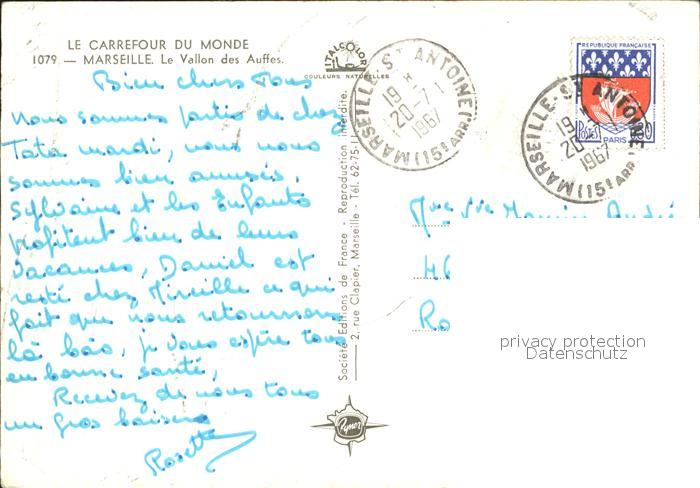 LE CARREFOUR DU MONDE
1079 — MARSEILLE. Le Vallon des Auffes.
ITALCOLOR
COULEURS NATURELLES
Bien chers Tous
nous sommes partis de chez
Tata mardi, nous nous
sommes bien amusés.
Sylvaine et les Enfants
profitent bien de leurs
vacances, Daniel est
resté chez Mireille ce qui
fait que nous retournons
là bas, je vous espère tous
en bonne santé,
Recevez de nous tous
un gros baisers
Rosette
Société Editions de France - Reproduction interdite.
2, rue Clapier, Marseille - Tél. 62-75-11
MARSEILLE-ST ANTOINE (15e ARR.)
19
20-7
1967
REPUBLIQUE FRANÇAISE
POSTES
PARIS
MARSEILLE-ST ANTOINE (15e ARR.)
19
20
1967
46
Ro
privacy protection
Datenschutz